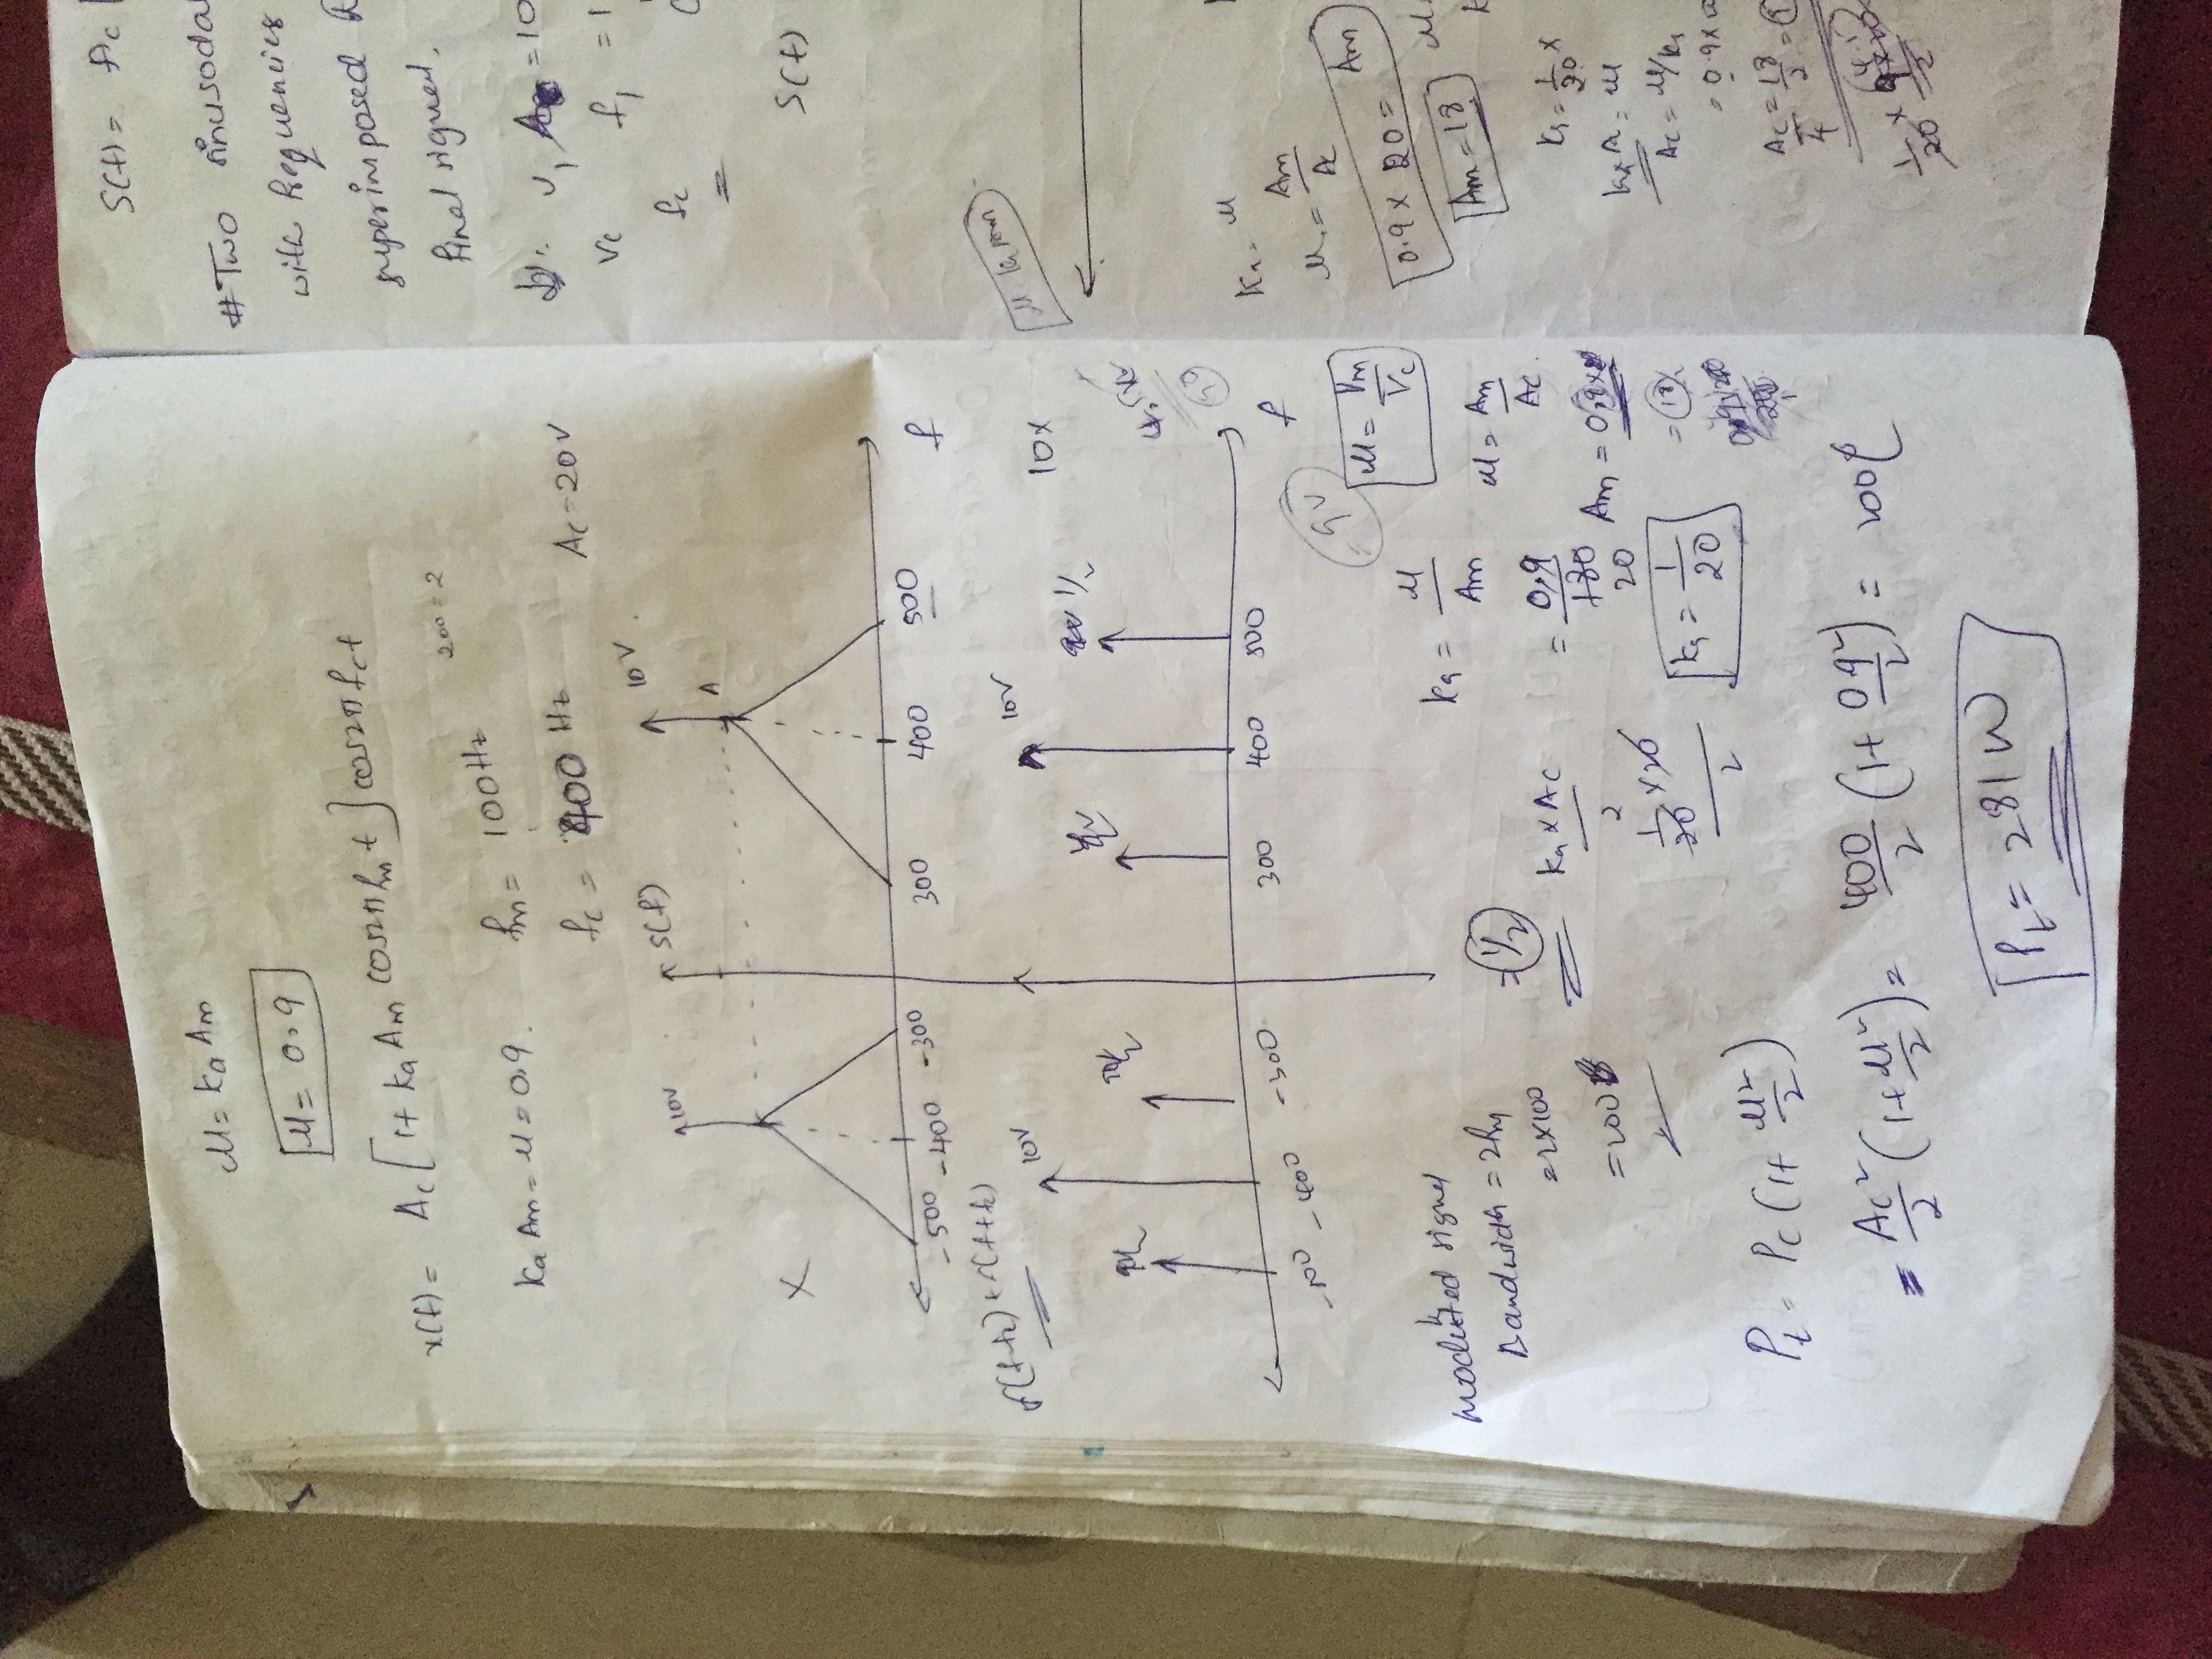 μ = ka Am
μ = 0.9
x(t) = Ac [1+ ka Am cos2π fm t] cos2π fc t
200 = 2
ka Am = μ = 0.9.
fm = 100Hz
fc = 400 Hz
Ac = 20V
10V
S(f)
10V.
A
X
-500
-400
-300
300
400
500
f
10V
10V
10x
1/2
-400
-300
300
400
500
f
= 9V
μ = Vm/Vc
signal
Bandwidth = 2fm
= 2x100
= 1/2
ka x Ac / 2
1/20 x 20 / 2
ka = μ/Am
= 0.9
20
ka = 1/20
μ = Am/Ac.
Am =
= 18
Pt = Pc (1+ μ²/2)
= Ac²/2 (1+ μ²/2) = 400/2 (1+ 0.9²/2) = 200(
Pt = 281 W
S(t) = Ac
# Two sinusoda
with frequencies
superimposed
final signal.
V1 = 10
Vc
f1 = 1
fc
S(t)
μ = ka Am
ka = μ
μ = Am/Ac
0.9 x 20 = Am
Am = 18
ka = 1/20 x
= μ
Ac = μ/ka
= 0.9 x
Ac/4 = 18/2 =